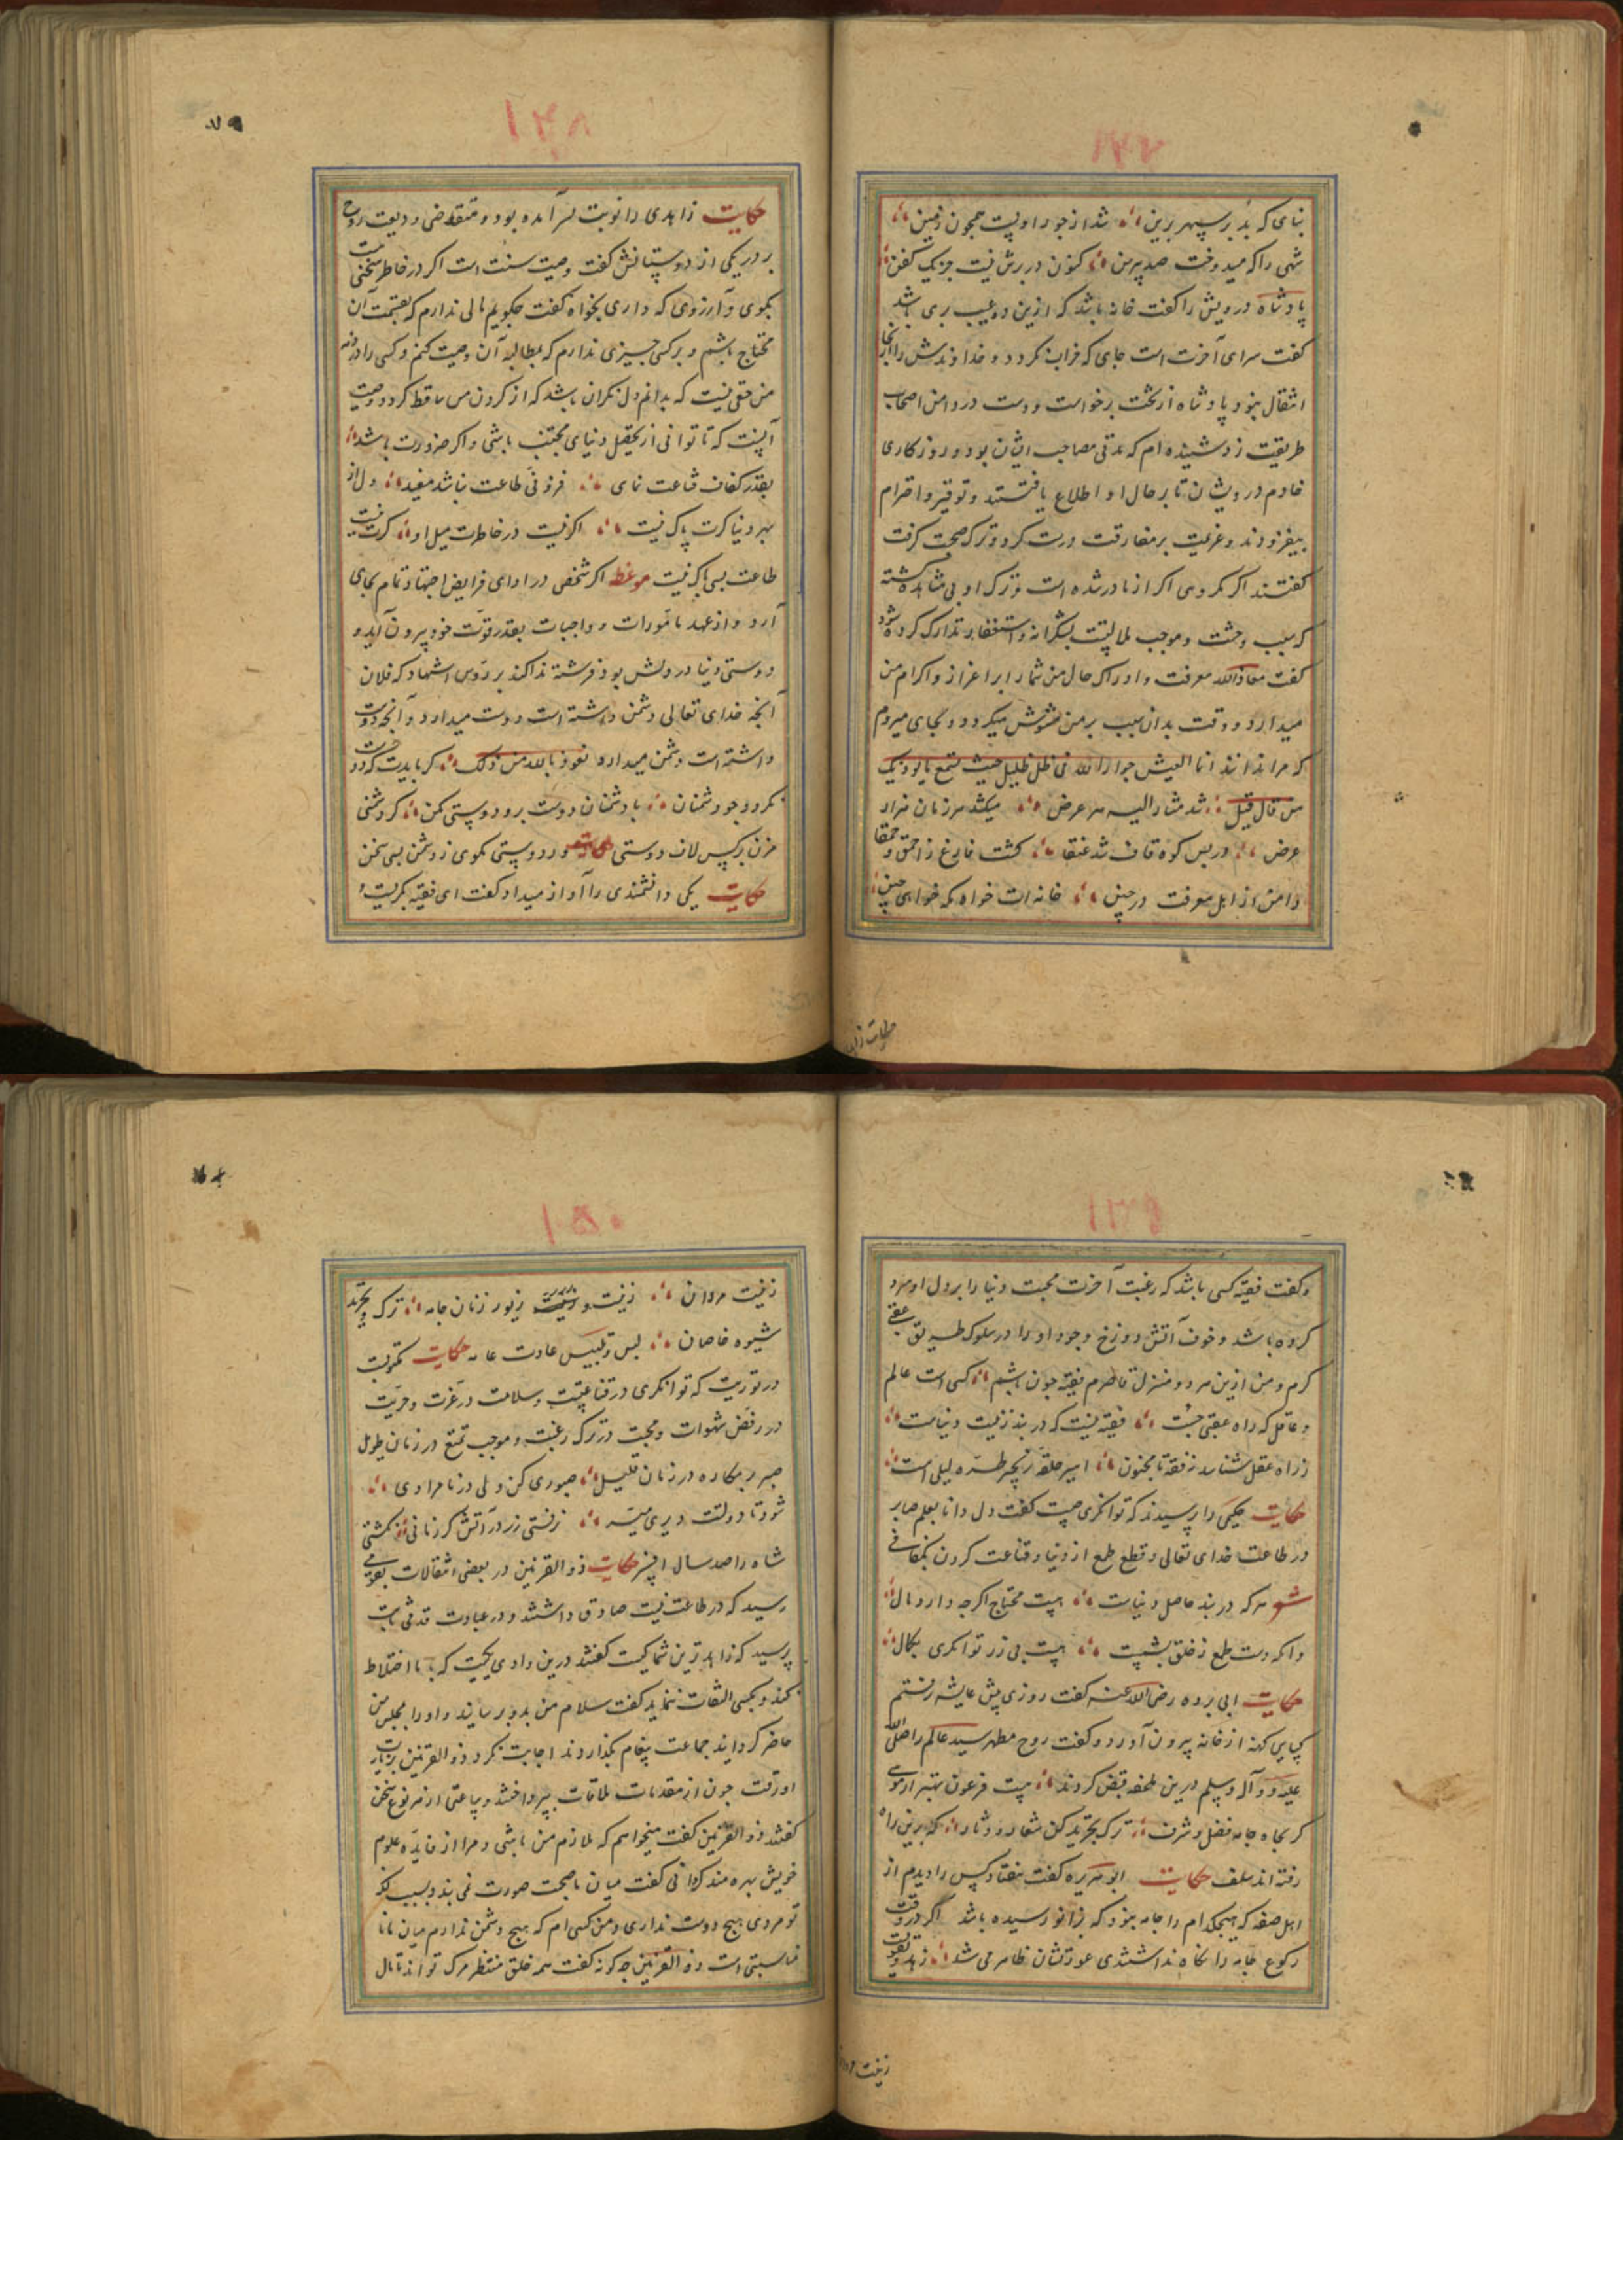 ۱۴۷
بنای که بد بر سپهر برین شد از جور او پست همچون زمین
شهی را که میدوخت صد پیرهن کنون در برش نیست جز یک کفن
پادشاه درویش را گفت خانه باشد که ازین دو عیب بری باشد
گفت سرای آخرت است جای که خراب نکردد و خداوندش را از آنجا
انتقال نبود پادشاه از تخت برخواست و دست در دامن اصحاب
طریقت زد شنیده ام که مدتی مصاحب ایشان بود و روزکاری
خادم درویشان تا بر حال او اطلاع یافتند و توقیر و احترام
بیفزودند و عزیمت بر مفارقت درست کرد و ترک صحبت گرفت
گفتند اکر مکروهی اکر از ما در شده است و ترک او بی مشاهده گشته
که سبب وحشت و موجب ملالتست بشکرانه و استغفار تدارک کرده شود
گفت معاذالله معرفت و ادراک حال من شما را بر اعزاز و اکرام من
میدارد و وقت بدان سبب بر من مشوش میکردد و بجای میروم
که مرا ندانند انما العیش جوار الله فی ظل ظلیل حیث تسمع یا لودیک
من قال قیل شد مشار الیه هر عرض میکشد هر زمان هزار
عرض در پس کوه قاف شد عنقا گشت فارغ ز احمق و حمقا
دامن از اهل معرفت در چین خانه ات خواه مکه خواهی چین
حکایت زاهد
۱۴۸
حکایت زاهدی را نوبت بسر آمده بود و متقاضی ودیعت روح
بر در یکی از دوستانش گفت وصیت سنت است اکر در خاطر سخنی هست
بکوی و آرزوی که داری بخواه گفت چکویم مالی ندارم که بقسمت آن
محتاج باشم و بر کسی چیزی ندارم که بمطالبه آن وصیت کنم و کسی را در ذمه
من حقی نیست که بدانم دل نکران باشد که از کردن من ساقط کردد وصیت
آنست که تا توانی از تحصیل دنیای مجتنب باشی و اکر ضرورت باشد
بقدر کفاف قناعت نمای فزونی طاعت نباشد مفید دل از
مهر دنیا کرت پاک نیست اکر نیست در خاطرت میل او کرت نیست
طاعت بسی باک نیست موعظه اکر شخصی در ادای فرایض اجتهاد تمام بجای
آرد و از عهد مامورات و واجبات بقدر قوت خود بیرون آید و
دوستی دنیا در دلش بود فرشته ندا کند بر رؤس اشهاد که فلان
آنچه خدای تعالی دشمن داشته است دوست میدارد و آنچه دوست
داشته است دشمن میدارد نعوذ بالله من ذلک کر بایدت که دوست
نکردد چو دشمنان با دشمنان دوست برو دوستی مکن کر دشمنی
مزن بر کس لاف دوستی ور دوستی مکوی ز دشمن بسی سخن
حکایت یکی دانشمندی را آواز میداد گفت ای فقیه بکریست
۱۴۹
و گفت فقیه کسی باشد که رغبت آخرت محبت دنیا را بر دل او سرد
کرده باشد و خوف آتش دوزخ وجود او را در سلوک طریق عقبی
کرم و من ازین هر دو منزل قاصرم فقیه چون باشم کسی است عالم
و عاقل که راه عقبی جست فقیه نیست که در بند زینت دنیاست
ز راه عقل شناسد ز فقه تا مجنون اسیر حلقه زنجیر طره لیلی است
حکایت حکیمی را پرسیدند که توانکری چیست گفت دل دانا بعلم صابر
در طاعت خدای تعالی و قطع طمع از دنیا و قناعت کردن بکفافی
شعر هر که در بند حاصل دنیاست هست محتاج اکرچه دارد مال
وانکه دست طمع ز خلق بشست هست بی زر توانکری بکمال
حکایت ابی برده رضی الله عنه گفت روزی پیش عایشه رفتم
کسای کهنه از خانه بیرون آورد و گفت روح مطهر سید عالم را صلی الله
علیه و آله و سلم درین ملحفه قبض کردند هست فرعون بهتر از موسی
کر بجاه جامه فضل و شرف ترک تجرید کن شعار و دثار که برین راه
رفته اند سلف حکایت ابو هریره گفت هفتاد کس را دیدم از
اهل صفه که هیچکدام را جامه نبود که بزانو رسیده باشد اگر در وقت
رکوع جامه را نکاه نداشتندی عورتشان ظاهر می شد زهد و تقوی
زینت مردان
۱۵۰
زینت مردان زینت و زیور زنان جامه ترک و تجرید
شیوه خاصان لبس و تلبیس عادت عامه حکایت مکتوبست
در توریت که توانکری در قناعتست و سلامت در عزت و حریت
در رفض شهوات و محبت در ترک رغبت و موجب تمتع در زمان طویل
صبر بر مکاره در زمان قلیل صبوری کن ولی در نامرادی
شود تا دولت دیری میسر ز نستی زر در آتش کر زمانی نکشتی
شاه را صد سال افسر حکایت ذوالقرنین در بعضی انتقالات بقومی
رسید که در طاعت نیت صادق داشتند و در عبادت قدمی ثابت
پرسید که زاهدترین شما کیست گفتند درین وادی یکیست که با ما اختلاط
نکند و بکسی التفات ننماید گفت سلام من بدو برسانید و او را بمجلس من
حاضر کردانید جماعت پیغام بگذاردند اجابت نکرد ذوالقرنین بزیارت
او رفت چون از مقدمات ملاقات بپرداختند و ساعتی از هر نوع سخن
گفتند ذوالقرنین گفت میخواهم که ملازم من باشی و مرا از فایده علوم
خویش بهره مند کردانی گفت میان ما صحبت صورت نمی بندد بسبب آنکه
تو مردی هیچ دوست نداری و من کسی ام که هیچ دشمن ندارم میان ما نا
مناسبتی است ذوالقرنین چکونه گفت همه خلق منتظر مرک تو اند تا مال